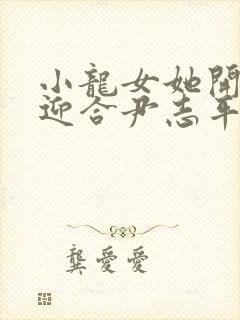 小龍女她開
迎合尹志平
龔愛愛